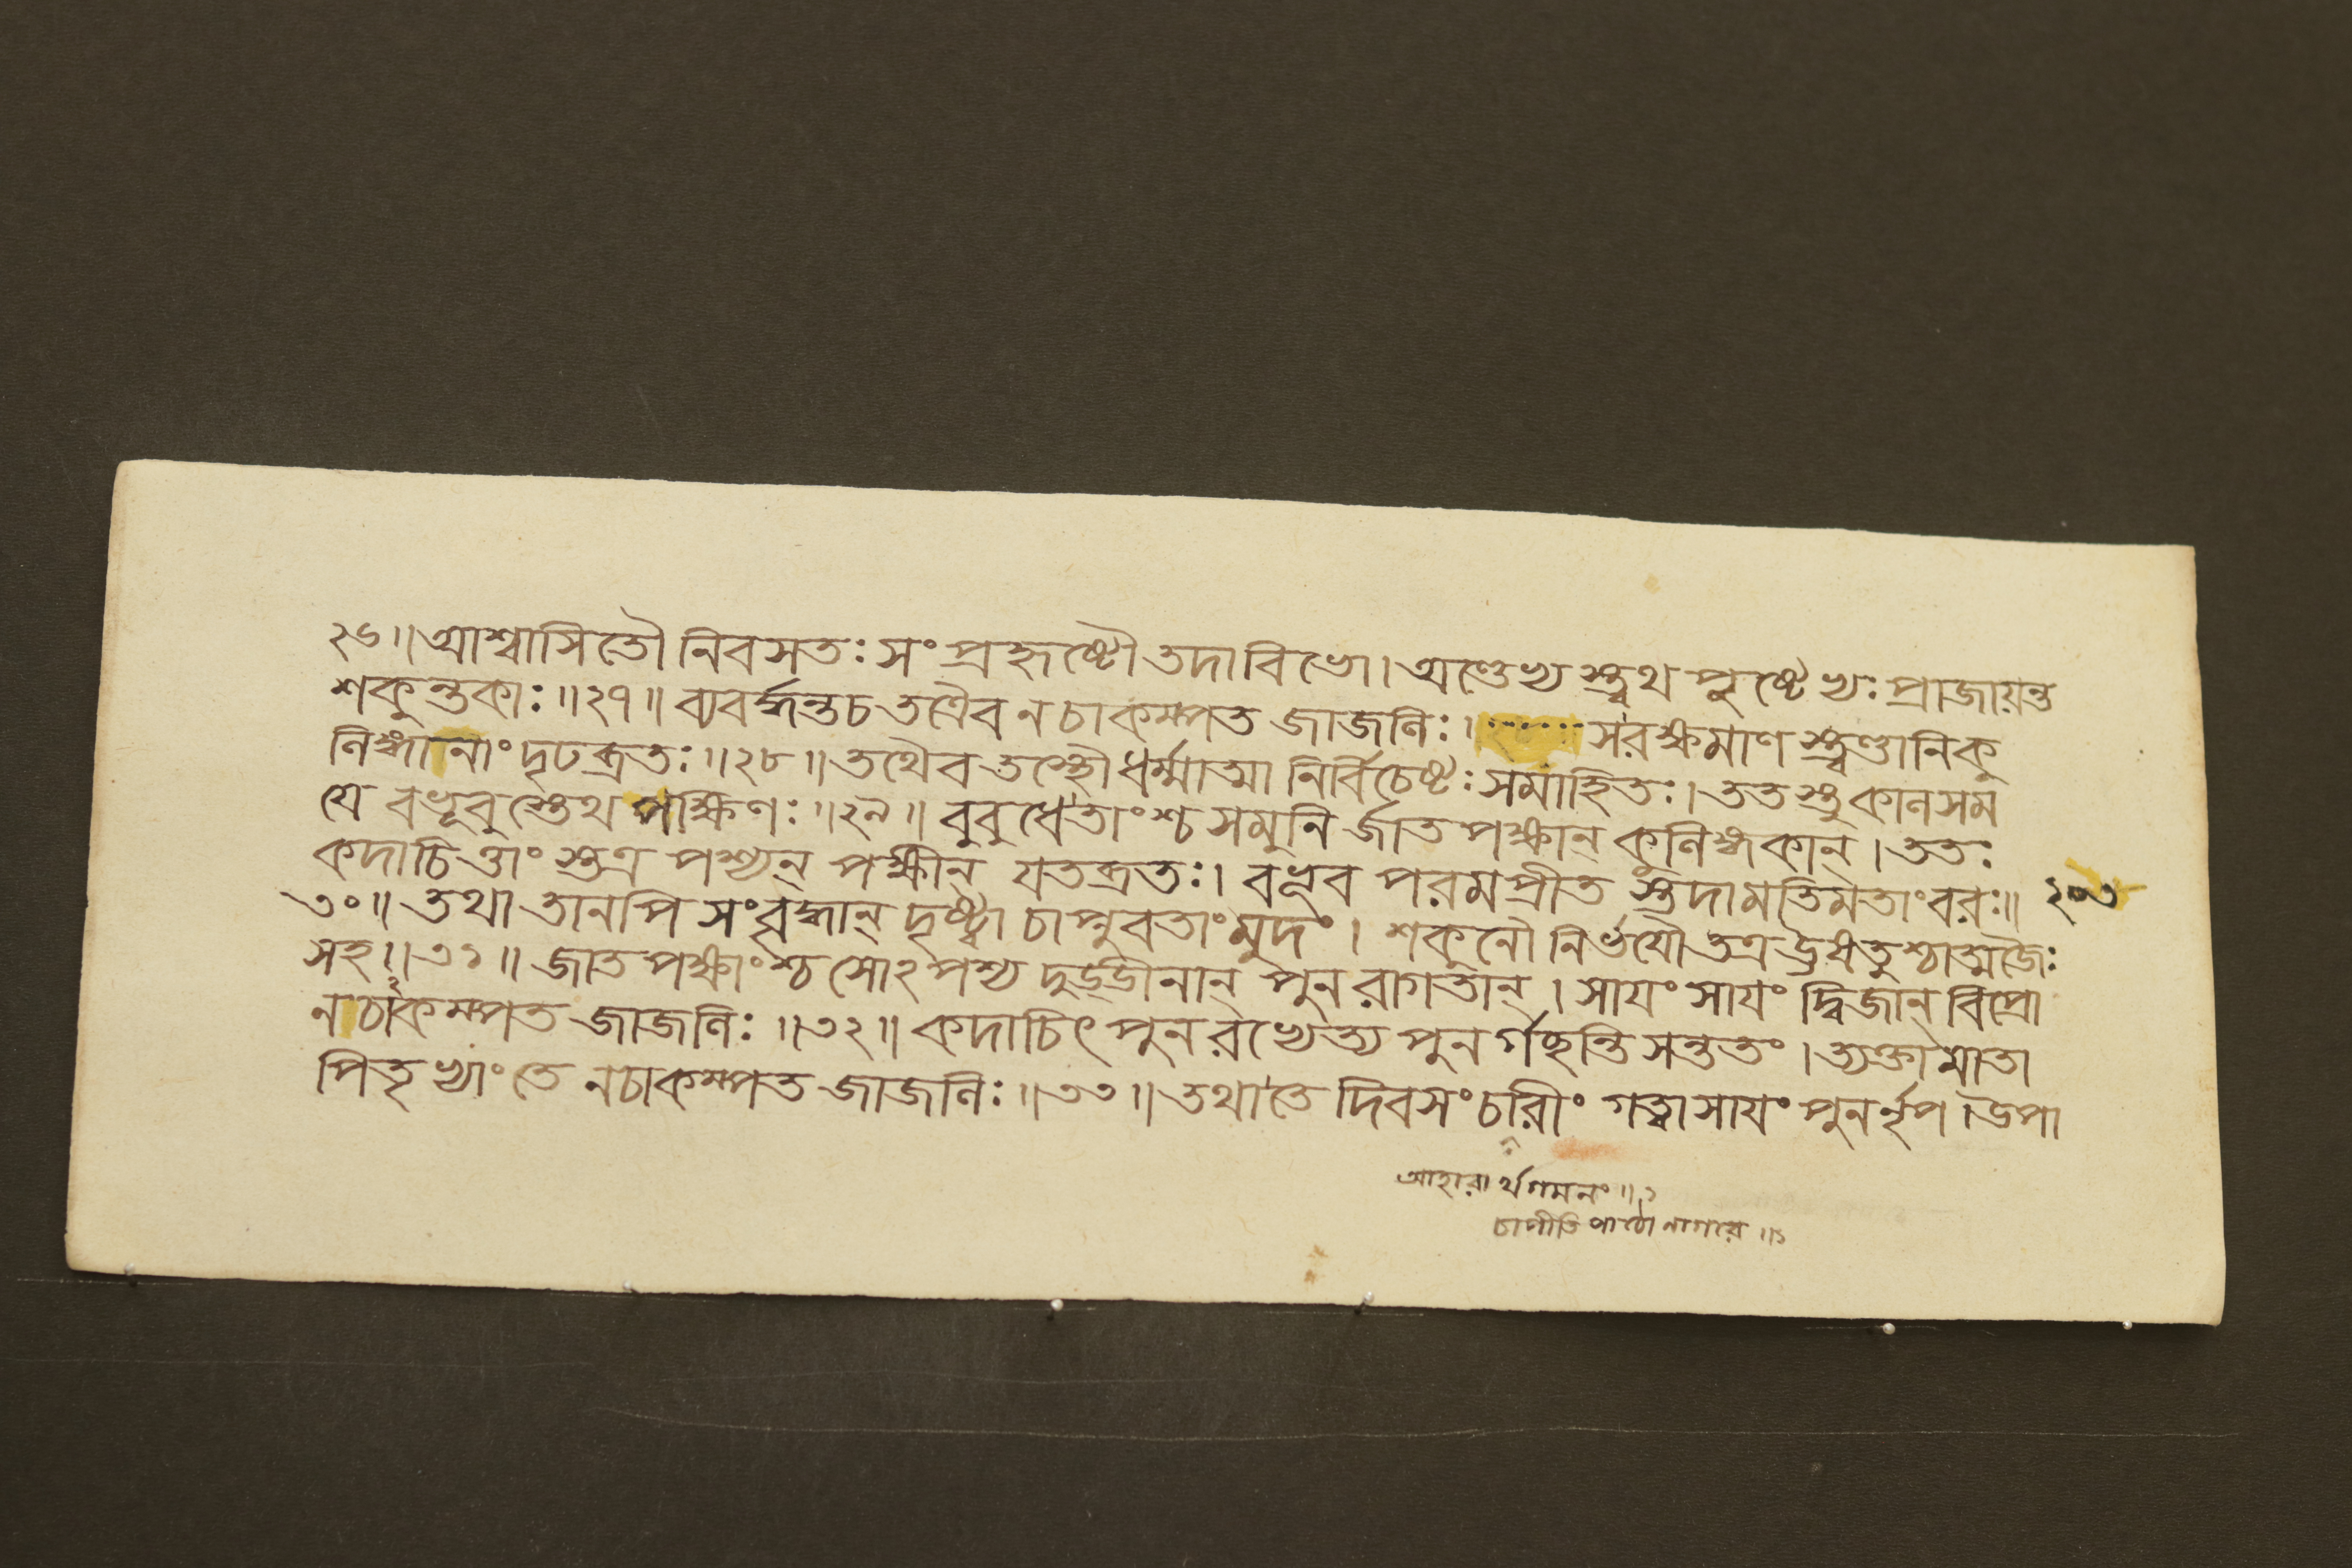 ২৬॥আশ্বাসিতৌ নিবসতঃ সংপ্রহৃষ্টৌ তদাবিভো।অণ্ডেভ্য স্ত্বথ পুষ্টেভ্যঃ প্রাজায়ন্ত
শকুন্তকাঃ॥২৭॥ ব্যবর্দ্ধন্তচ তত্রৈব ন চাকম্পত জাজলিঃ। সরক্ষমাণ স্ত্বণ্ডানিকু
লিঙ্গানাং দৃঢব্রতঃ॥২৮॥ তথৈব তস্থৌ ধর্ম্মাত্মা নির্বিচেষ্টঃ সমাহিতঃ। ততস্তু কালসম
যে বভূবু স্তেথ পক্ষিণঃ॥২৯॥ বুবুধেতাংশ্চ সমুনি র্জাত পক্ষান্ কুলিঙ্গকান্।ততঃ
কদাচি ত্তাং স্তত্র পশ্যন্ পক্ষীন্ যতব্রতঃ। বভূব পরমপ্রীত স্তদামতিমতাংবরঃ॥ ২০৩
৩০॥ তথা তানপি সংবৃদ্ধান্ দৃষ্ট্বা চাপ্নুবতাং মুদং। শকুনৌ নির্ভযৌ তত্র উষতুশ্চাত্মজৈঃ
সহ॥৩১॥ জাত পক্ষাংশ্চ সোঽপশ্য দুড্ডীনান্ পুনরাগতান্। সাযং সাযং দ্বিজান্ বিপ্রো
ন চাকম্পত জাজলিঃ॥৩২॥ কদাচিৎ পুনরভ্যেত্য পুনর্গচ্ছন্তি সন্ততং।ত্যক্তা মাতা
পিতৃভ্যাং তে নচাকম্পত জাজলিঃ॥৩৩॥ তথা তে দিবসং চারীং গত্বা সাযং পুনর্নৃপ।উপা
আহারার্থগমনং॥১
চাপীতি পাঠো নাগরে॥১